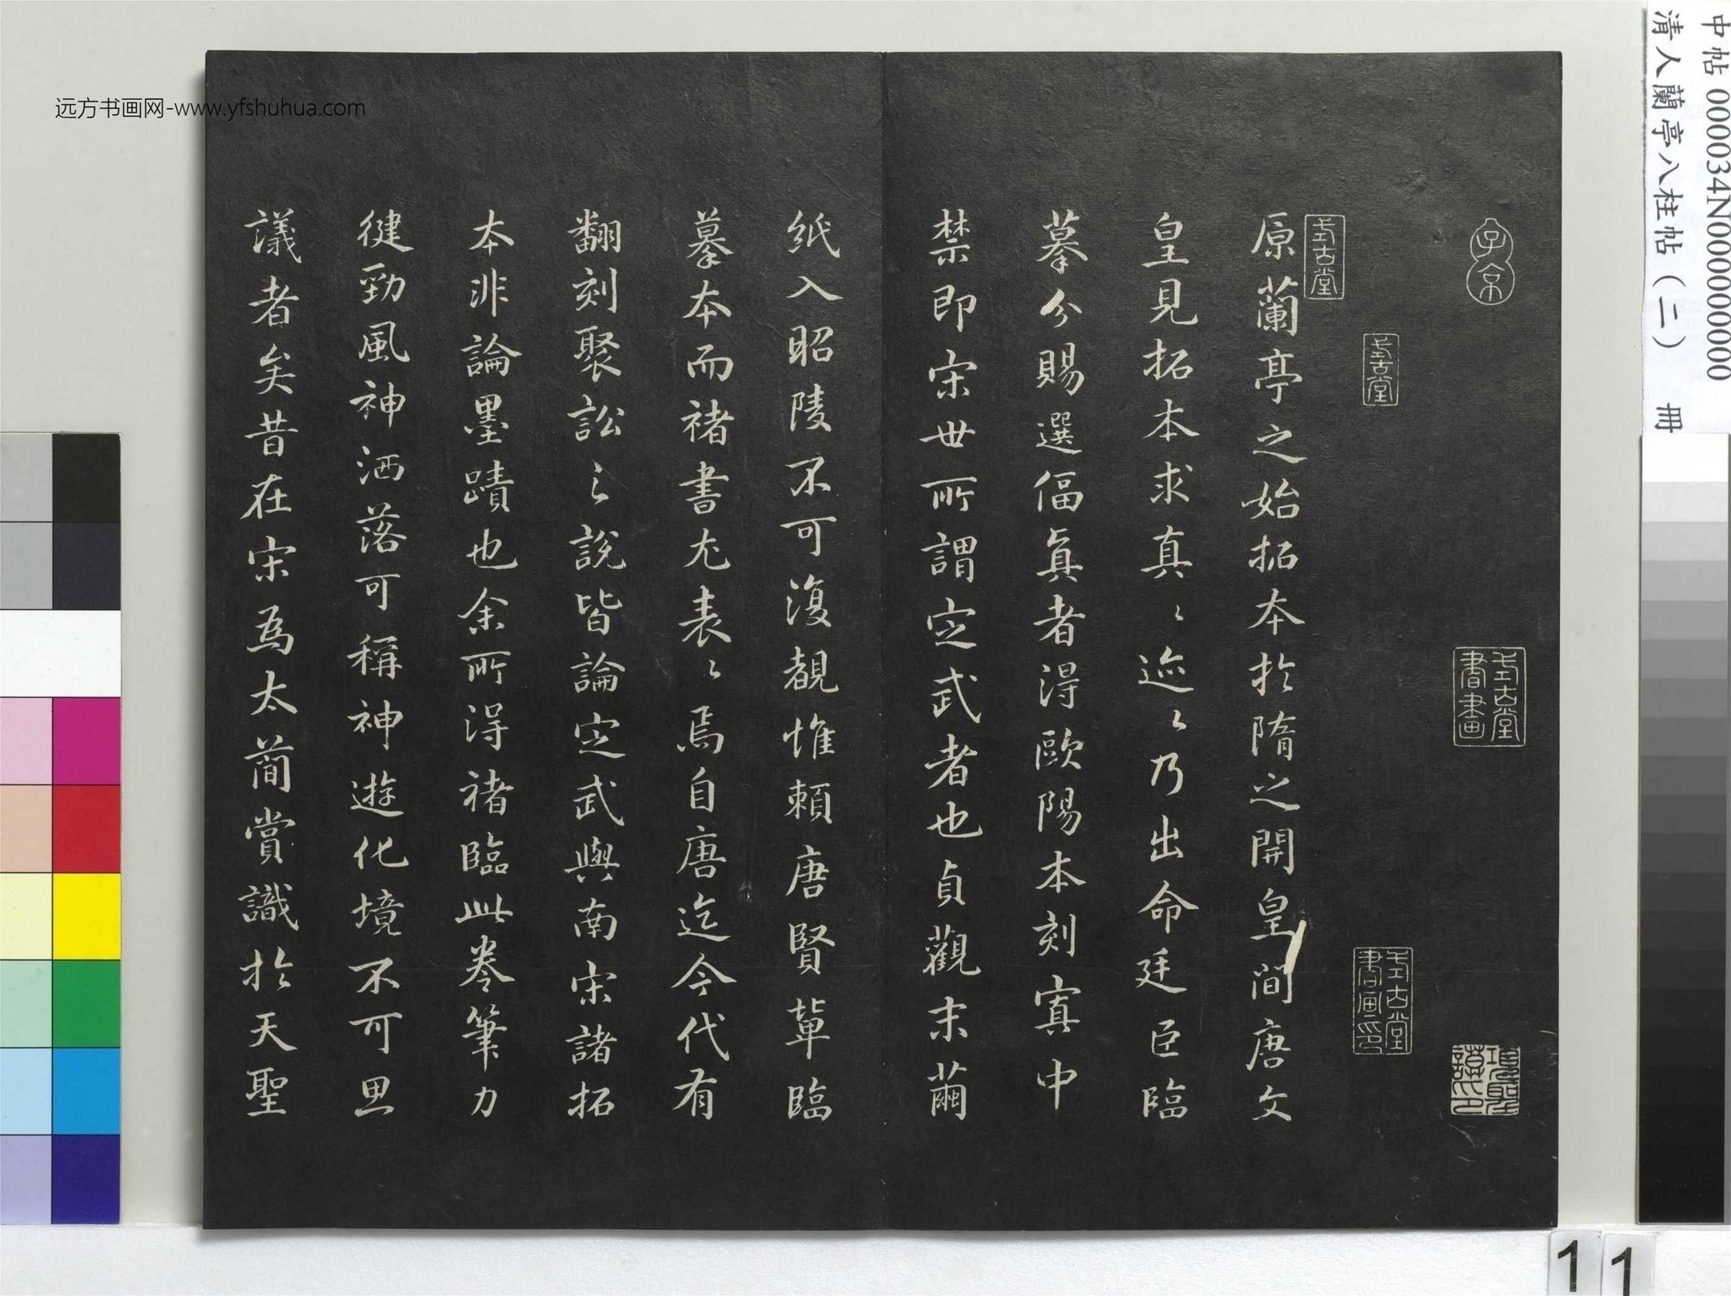 中帖 000034N000000000
清人蘭亭八柱帖（二） 冊
远方书画网-www.yfshuhua.com
子京
書畫
原蘭亭之始拓本於隋之開皇間唐文
皇見拓本求真〻迹〻乃出命廷臣臨
摹分賜選偪真者得歐陽本刻寘中
禁即宋世所謂定武者也貞觀末繭
紙入昭陵不可復覩惟賴唐賢輩臨
摹本而褚書尤表〻焉自唐迄今代有
翻刻聚訟之說皆論定武與南宋諸拓
本非論墨蹟也余所得褚臨此卷筆力
健勁風神洒落可稱神遊化境不可思
議者矣昔在宋為太簡賞識於天聖
11